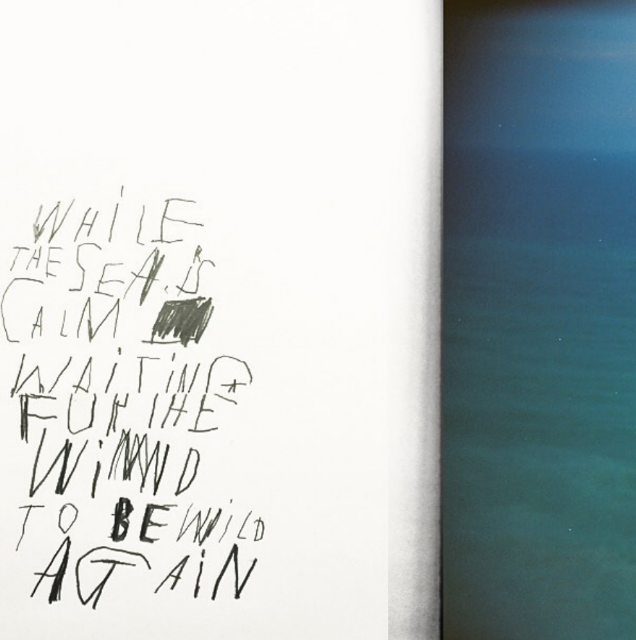 WHiLE
THE SEA. iS
CALM
WAiTiNG
FOR THE
WiNND
TO BE WiLD
AGAiN